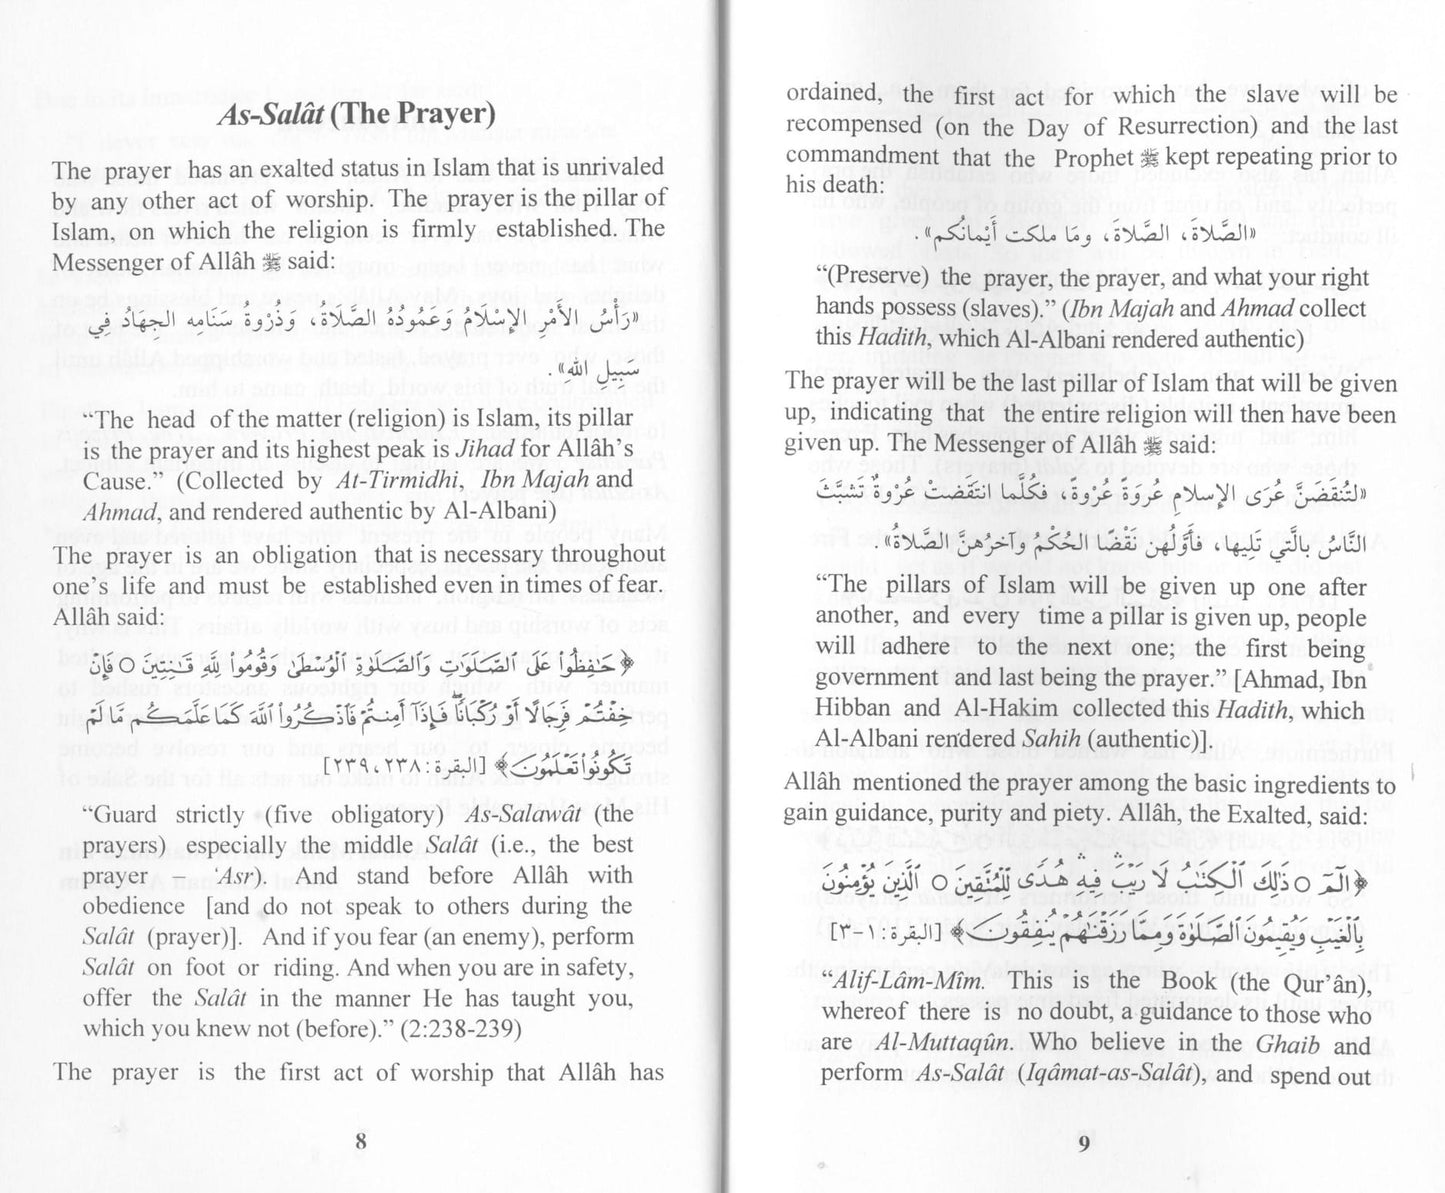 As-Salât (The Prayer)
The prayer has an exalted status in Islam that is unrivaled
by any other act of worship. The prayer is the pillar of
Islam, on which the religion is firmly established. The
Messenger of Allâh ﷺ said:
«رَأْسُ الأَمْرِ الإِسْلَامُ وَعَمُودُهُ الصَّلَاةُ، وَذُرْوَةُ سَنَامِهِ الجِهَادُ فِي
سَبِيلِ اللهِ».
“The head of the matter (religion) is Islam, its pillar
is the prayer and its highest peak is Jihad for Allâh’s
Cause.” (Collected by At-Tirmidhi, Ibn Majah and
Ahmad, and rendered authentic by Al-Albani)
The prayer is an obligation that is necessary throughout
one’s life and must be established even in times of fear.
Allâh said:
﴿حَـٰفِظُوا۟ عَلَى ٱلصَّلَوَٰتِ وَٱلصَّلَوٰةِ ٱلْوُسْطَىٰ وَقُومُوا۟ لِلَّهِ قَـٰنِتِينَ ○ فَإِنْ
خِفْتُمْ فَرِجَالًا أَوْ رُكْبَانًا ۖ فَإِذَآ أَمِنتُمْ فَٱذْكُرُوا۟ ٱللَّهَ كَمَا عَلَّمَكُم مَّا لَمْ
تَكُونُوا۟ تَعْلَمُونَ﴾ [البقرة: ٢٣٨، ٢٣٩]
“Guard strictly (five obligatory) As-Salawât (the
prayers) especially the middle Salât (i.e., the best
prayer – ‘Asr). And stand before Allâh with
obedience [and do not speak to others during the
Salât (prayer)]. And if you fear (an enemy), perform
Salât on foot or riding. And when you are in safety,
offer the Salât in the manner He has taught you,
which you knew not (before).” (2:238-239)
The prayer is the first act of worship that Allâh has
8
ordained, the first act for which the slave will be
recompensed (on the Day of Resurrection) and the last
commandment that the Prophet ﷺ kept repeating prior to
his death:
«الصَّلَاةَ، الصَّلَاةَ، ومَا ملكت أَيْمَانُكُم».
“(Preserve) the prayer, the prayer, and what your right
hands possess (slaves).” (Ibn Majah and Ahmad collect
this Hadith, which Al-Albani rendered authentic)
The prayer will be the last pillar of Islam that will be given
up, indicating that the entire religion will then have been
given up. The Messenger of Allâh ﷺ said:
«لتُنقَضَنَّ عُرَى الإِسلامِ عُروَةً عُروَةً، فكُلَّما انتَقَضتْ عُروَةٌ تَشبَّثَ
النَّاسُ بالَّتي تَلِيها، فأَوَّلُهن نَقْضًا الحُكْمُ وآخرُهنَّ الصَّلاةُ».
“The pillars of Islam will be given up one after
another, and every time a pillar is given up, people
will adhere to the next one; the first being
government and last being the prayer.” [Ahmad, Ibn
Hibban and Al-Hakim collected this Hadith, which
Al-Albani rendered Sahih (authentic)].
Allâh mentioned the prayer among the basic ingredients to
gain guidance, purity and piety. Allâh, the Exalted, said:
﴿الٓمٓ ○ ذَٰلِكَ ٱلْكِتَـٰبُ لَا رَيْبَ ۛ فِيهِ ۛ هُدًى لِّلْمُتَّقِينَ ○ ٱلَّذِينَ يُؤْمِنُونَ
بِٱلْغَيْبِ وَيُقِيمُونَ ٱلصَّلَوٰةَ وَمِمَّا رَزَقْنَـٰهُمْ يُنفِقُونَ﴾ [البقرة: ١-٣]
“Alif-Lâm-Mîm. This is the Book (the Qur’ân),
whereof there is no doubt, a guidance to those who
are Al-Muttaqûn. Who believe in the Ghaib and
perform As-Salât (Iqâmat-as-Salât), and spend out
9